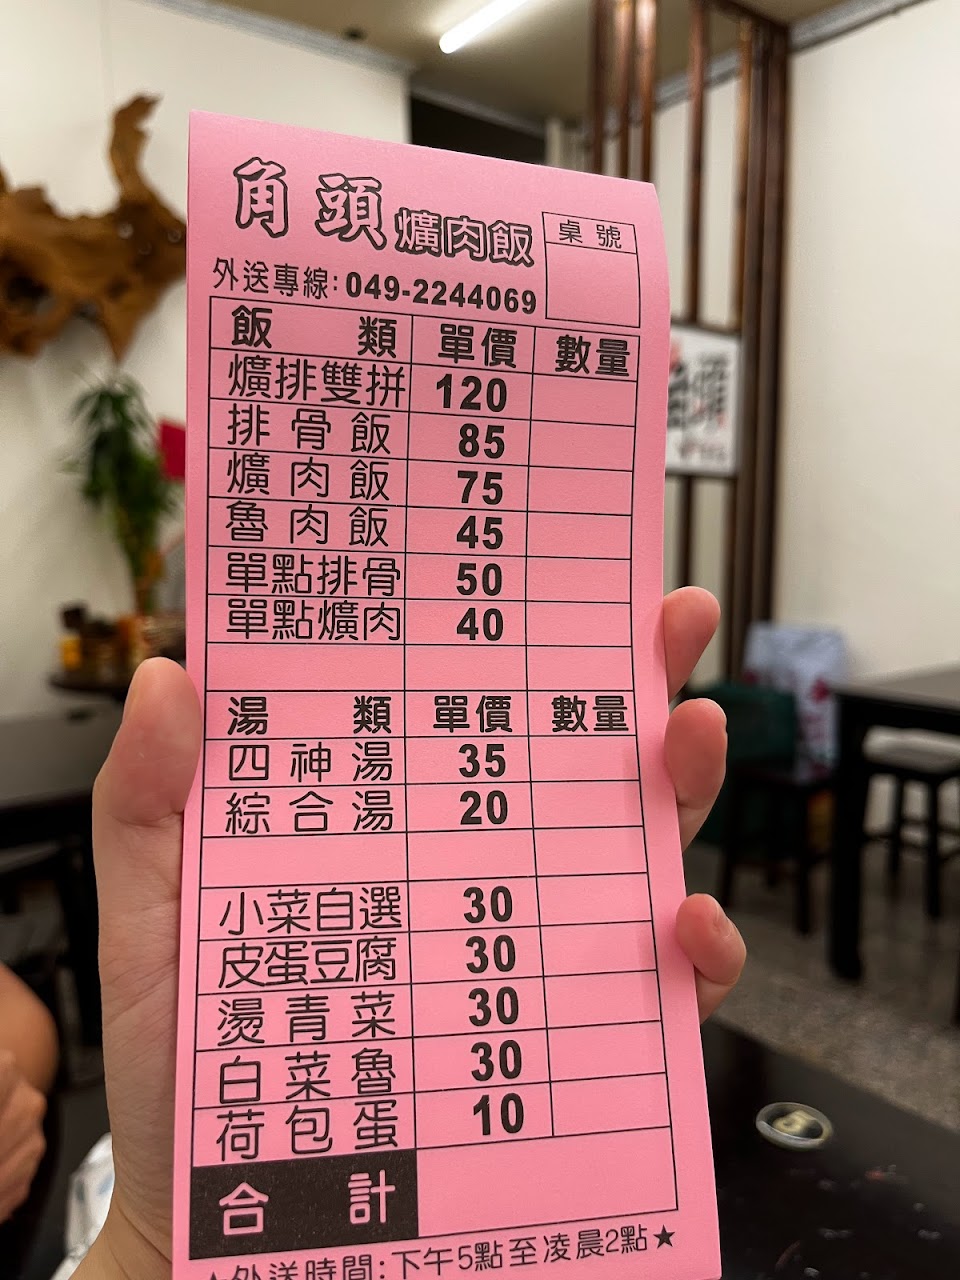 角頭爌肉飯 桌號
外送專線:049-2244069
飯類 單價 數量
爌排雙拼 120
排骨飯 85
爌肉飯 75
魯肉飯 45
單點排骨 50
單點爌肉 40
湯類 單價 數量
四神湯 35
綜合湯 20
小菜自選 30
皮蛋豆腐 30
燙青菜 30
白菜魯 30
荷包蛋 10
合計
★外送時間:下午5點至凌晨2點★
5